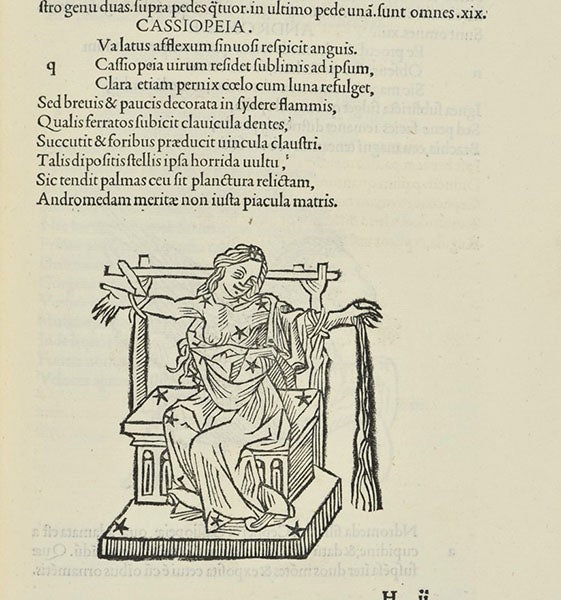 ſtro genu duas. ſupra pedes q̃tuor. in ultimo pede unã. ſunt omnes .xix.
CASSIOPEIA.
Va latus afflexum ſinuoſi reſpicit anguis.
q Caſſiopeia uirum reſidet ſublimis ad ipſum,
Clara etiam pernix cœlo cum luna refulget,
Sed breuis & paucis decorata in ſydere flammis,
Qualis ferratos ſubicit clauicula dentes,
Succutit & foribus præducit uincula clauſtri.
Talis diſpoſitis ſtellis ipſa horrida uultu,
Sic tendit palmas ceu ſit planctura relictam,
Andromedam meritæ non iuſta piacula matris.
H ii